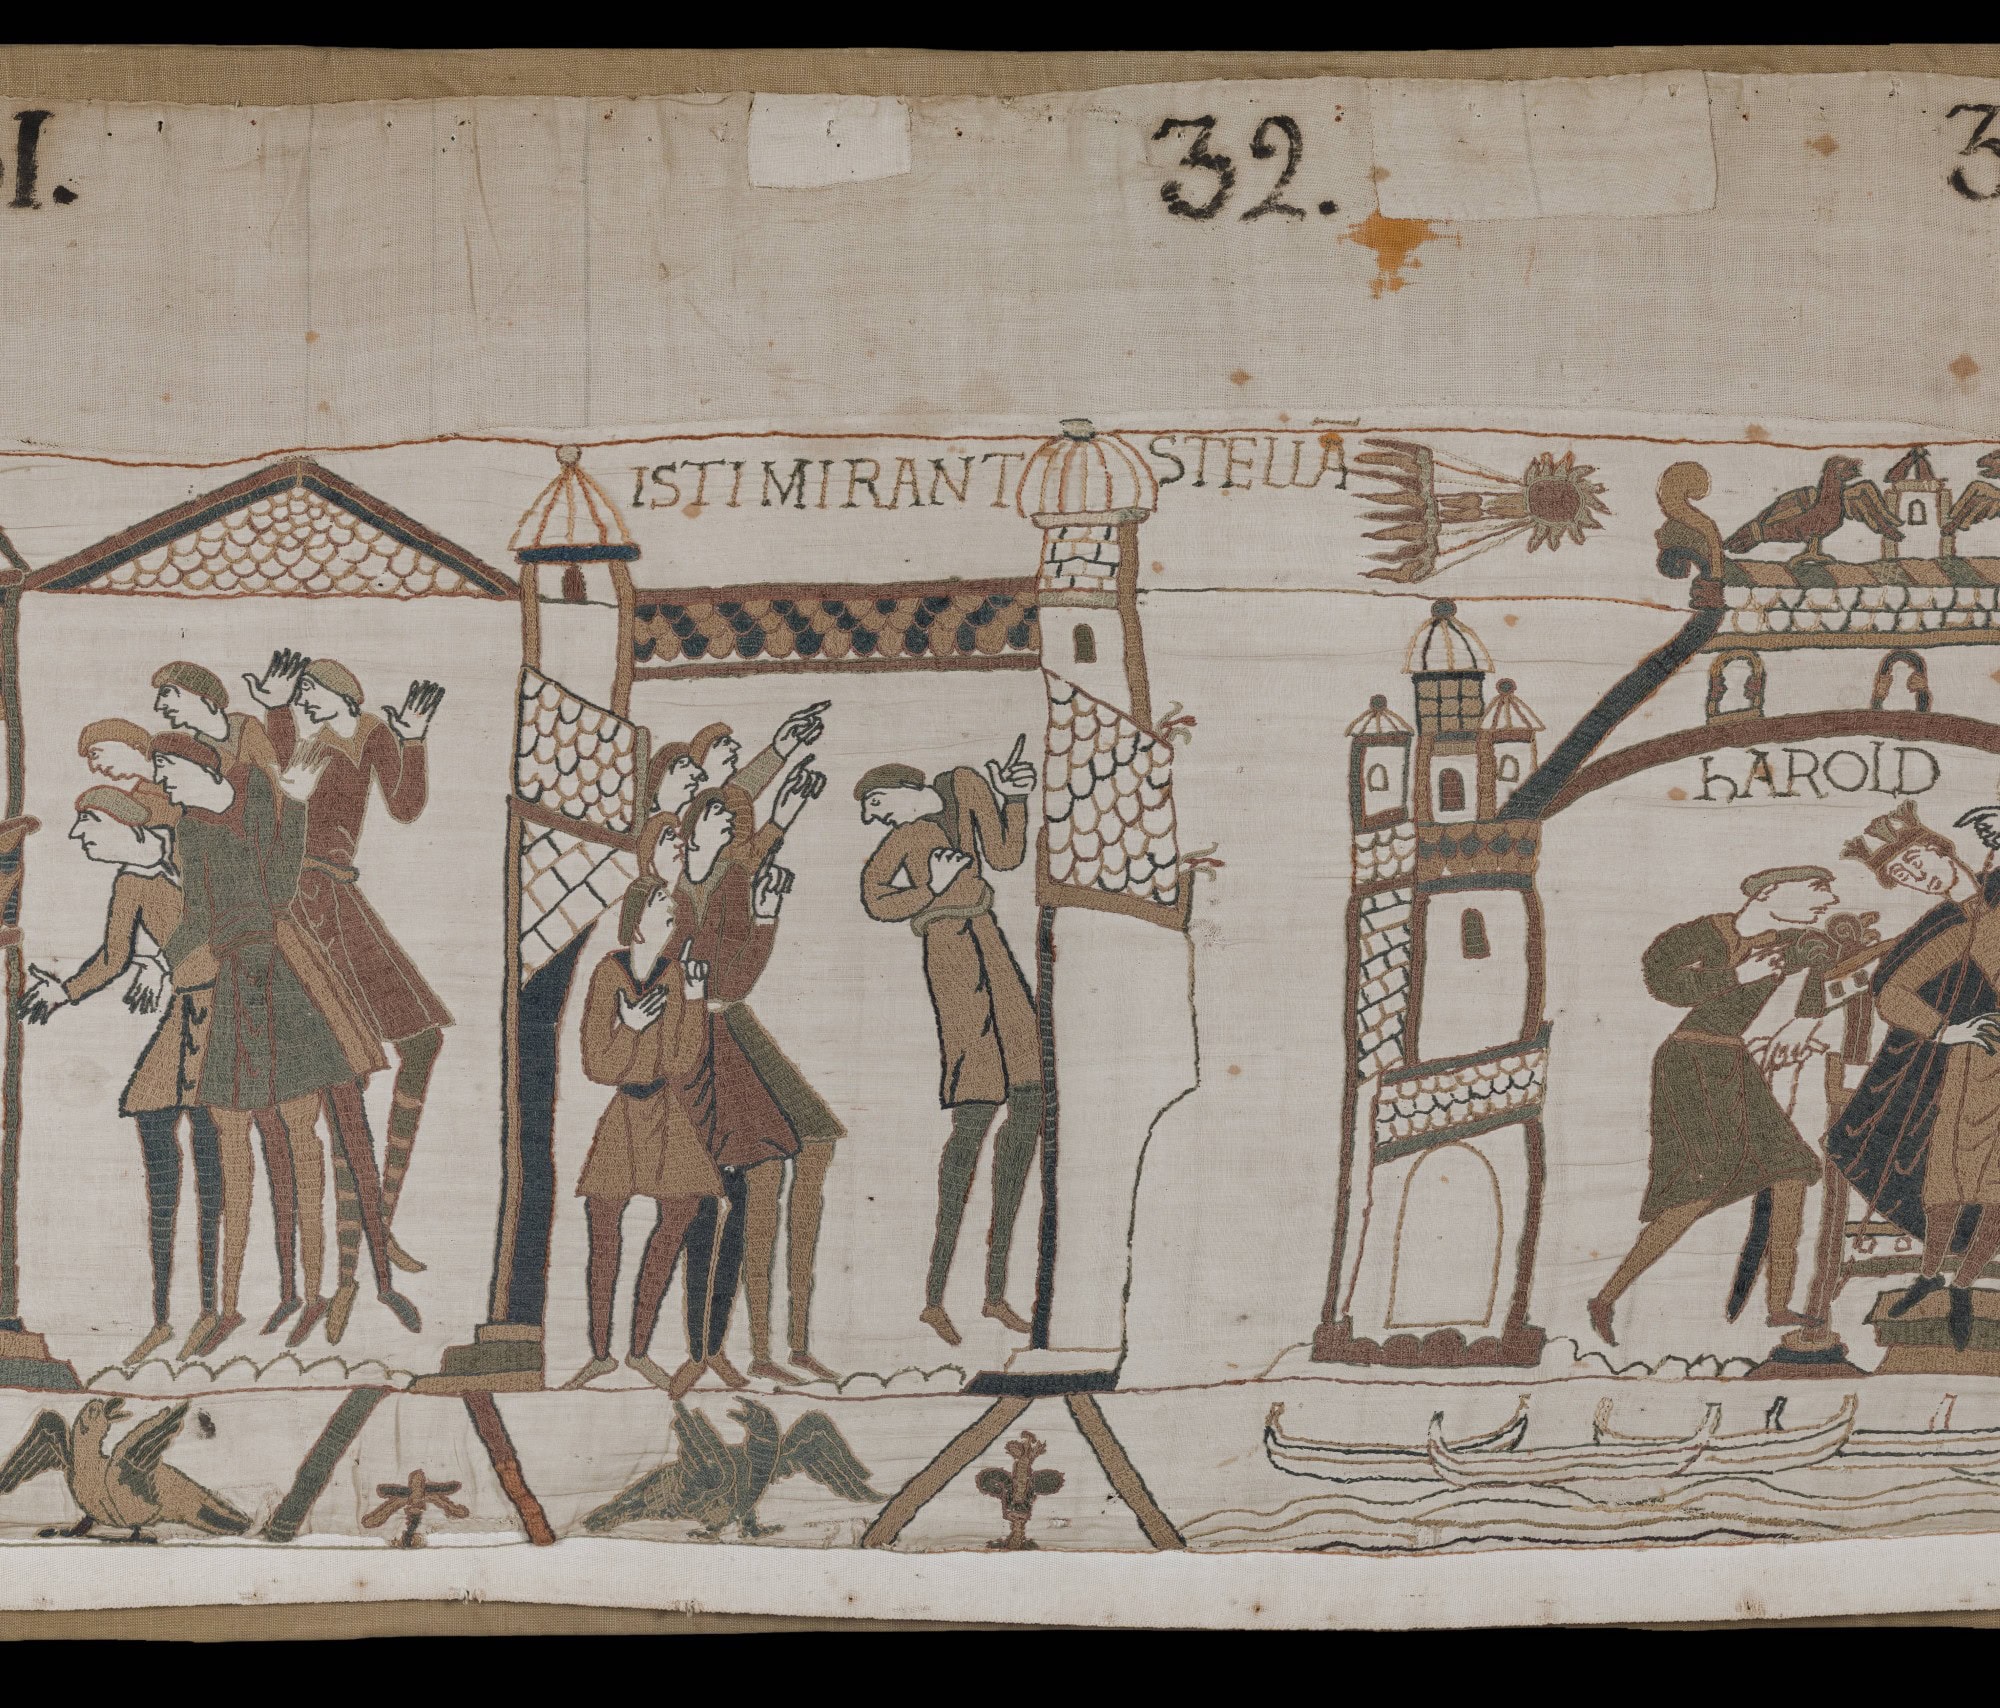 32.
ISTI MIRANT STELLA̅
hAROLD